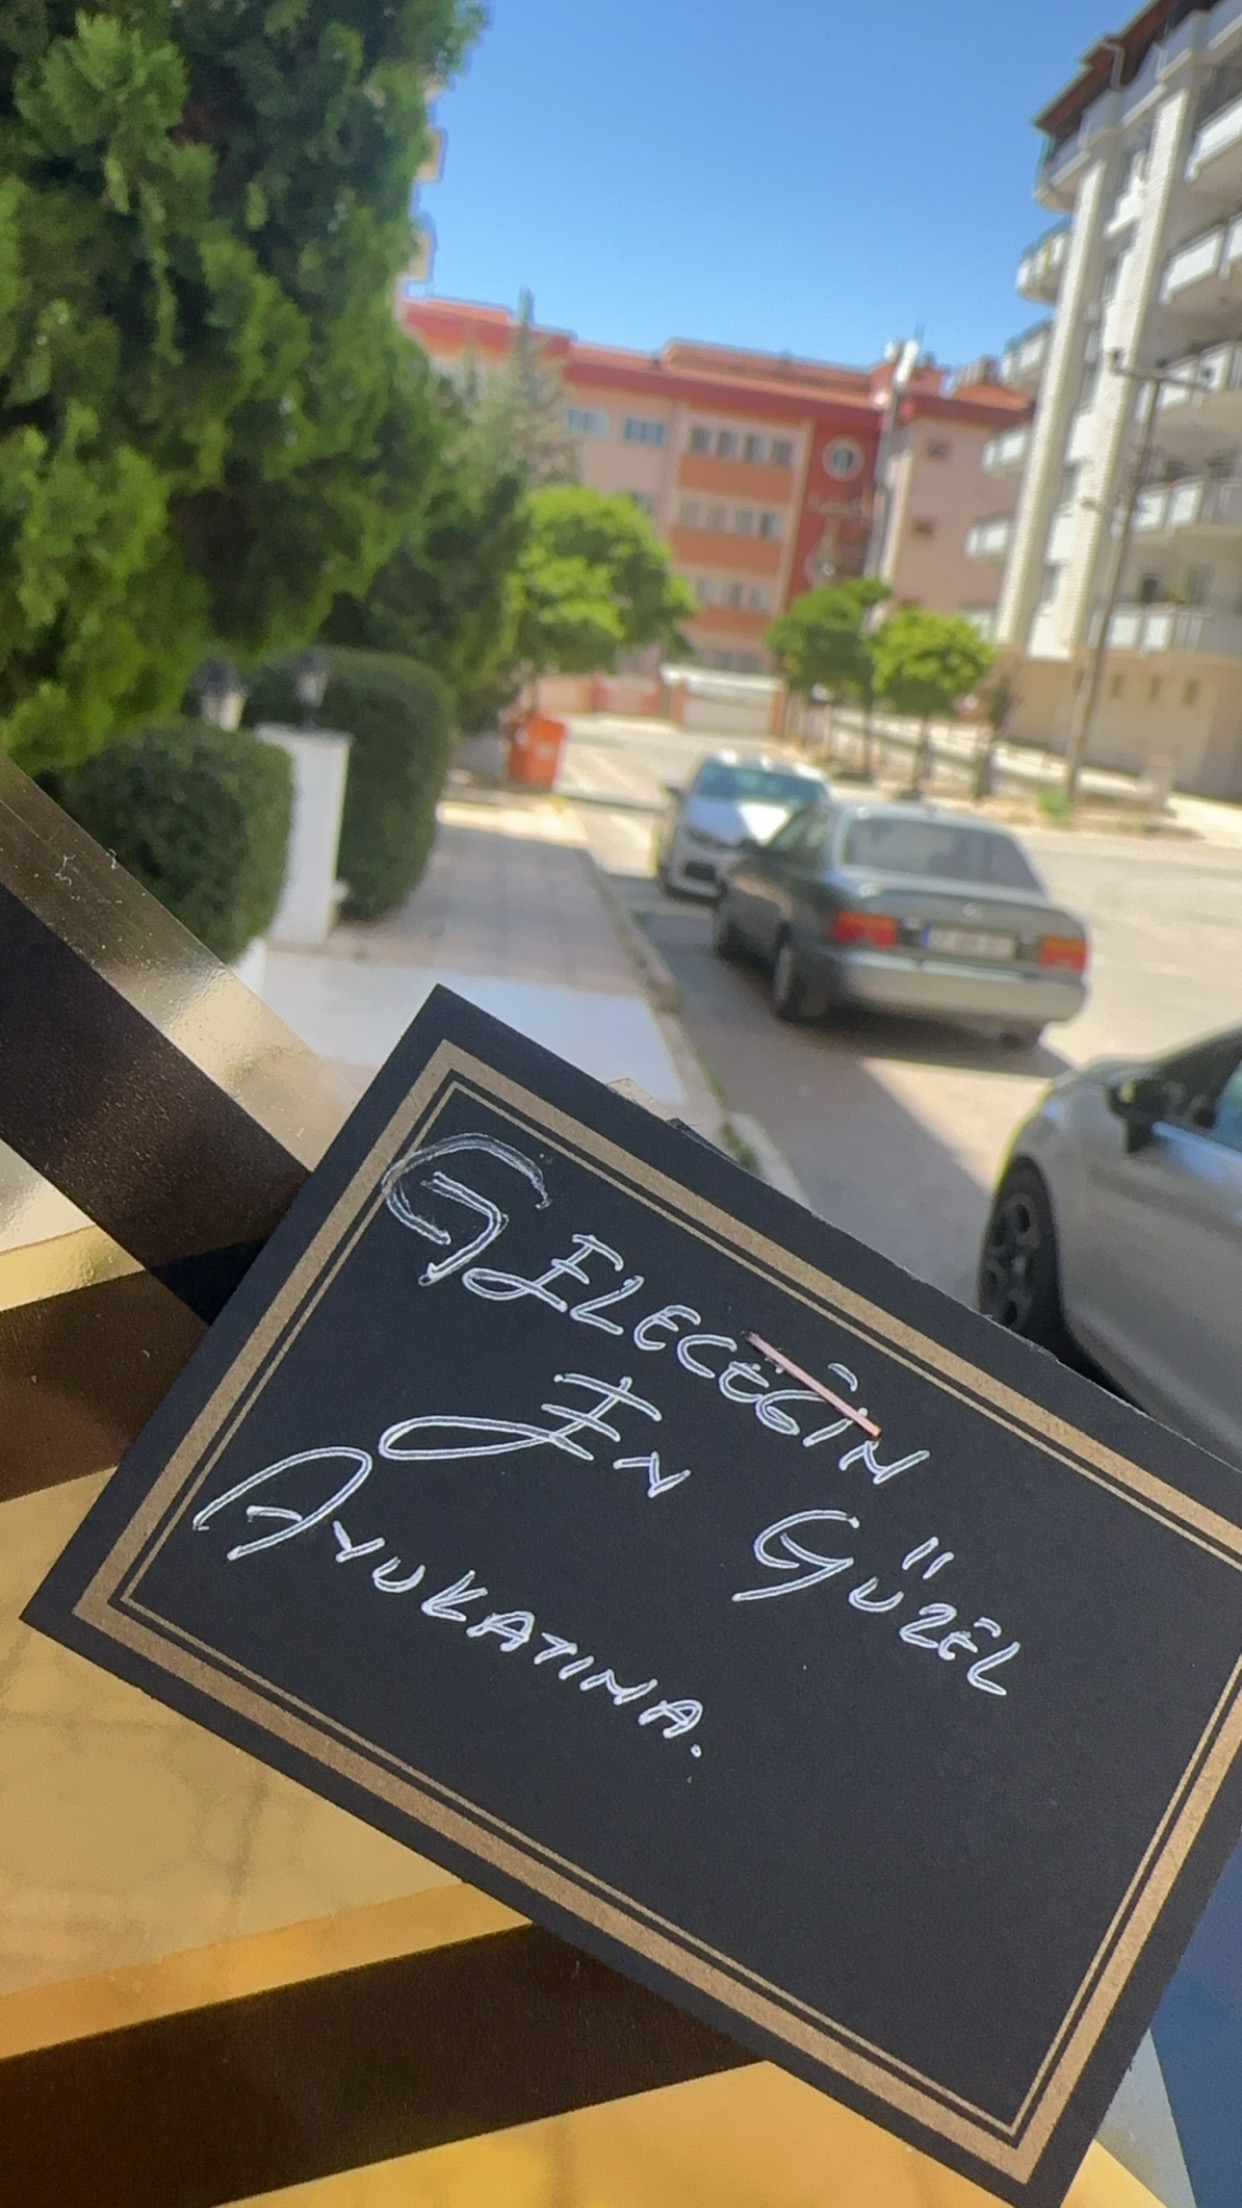 GELECEĞİN
EN GÜZEL
AVUKATINA.